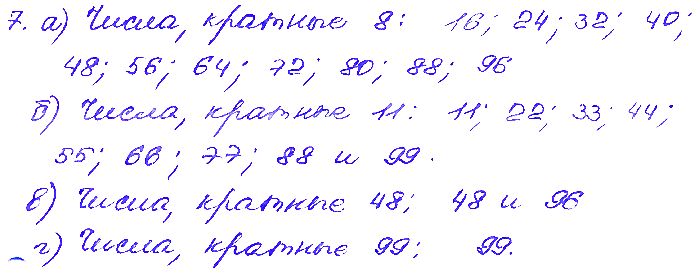 7. а) Числа, кратные 8: 16; 24; 32; 40;
48; 56; 64; 72; 80; 88; 96
б) Числа, кратные 11: 11; 22; 33; 44;
55; 66; 77; 88 и 99.
в) Числа, кратные 48; 48 и 96
г) Числа, кратные 99; 99.